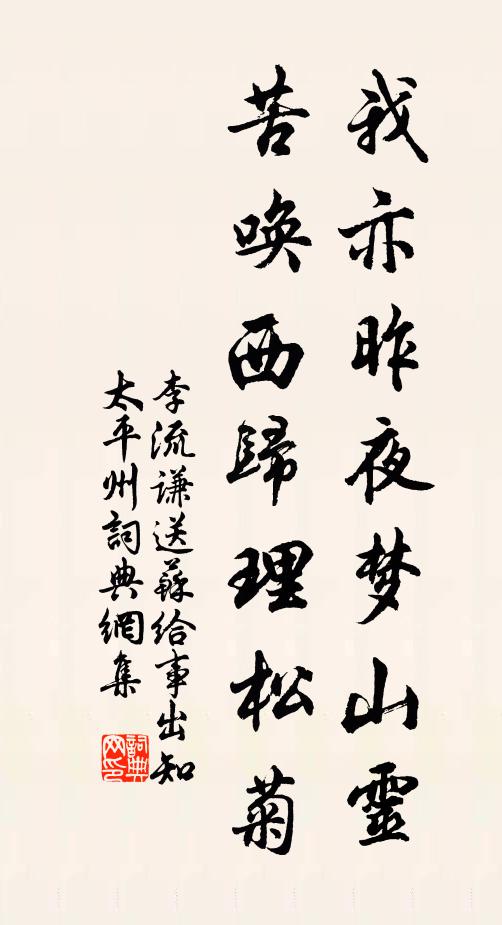 我亦昨夜梦山靈
苦唤西歸理松菊
李流谦送蘇给事出知
太平州詞典網集
詞典网印